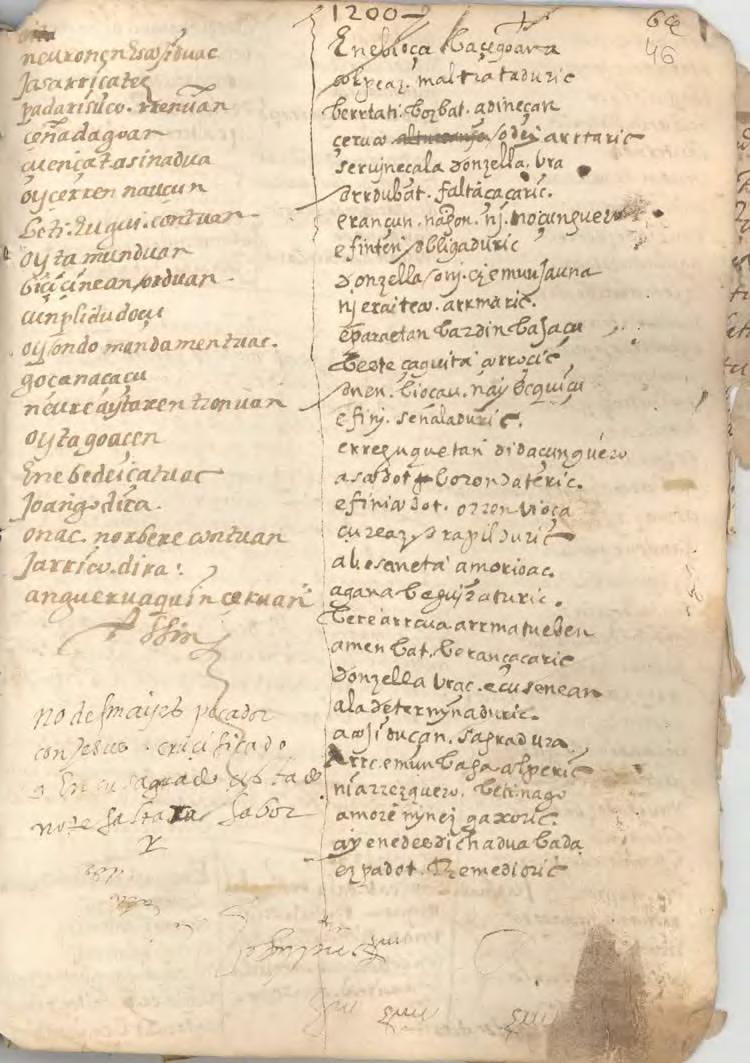 1200
64
46
neuronen
Jasarricateç
padarisuco. rrenuan
ceñadagoan
cuençatasinadua
oyçerren naucun
beti. çuqui. contuan
oyta munduan
biciçinean orduan
cunplidudoçu
oy ondo mandamentuac.
goçanaçaçu
neure aytaren tronuan
oyta goacen
Ene bedeicatuac
Joangodira.
onac. norbere contuan
Jarrico. dira.
angueruaquin çeruan
Ffin
no desmayes pecador
con Jesus. crucificado
q En su sagrado
no te faltara fabor
Ene bioça baçegoana
golpeaz. maltrataduric
berrtati. bozbat. adineçan
çerua odei arrtaric
serujneçala donzella. bra
ordubat. faltacaçaric.
erançun. naʒon. nj. noçunguero
efinten obligaduric
donzella onj. eʒemun Jauna
nj eraiteco. arrmaric.
eparaetan bazdin basaçu
beste çaquita arroçic
onen. bioçau. nay beçuiçu
efinj. señaladuric.
erreʒuguetan didaçunguero
asco dot borondateric.
efinico dot. orren vioça
çureaz. trapilduric
alꝫsaneta amorioac.
agana beguiratturic.
bere arraia arrmatueben
amenbat. berançaçaric
donzella brac. eçusenean
ala determynaduric.
aoiduçan. sagradura
Arrc. emun basa colperic
ni arrezquero. betinago
amore mynez gaxoric.
ay enedesdichadua bada
ezpadot. Rremedioric